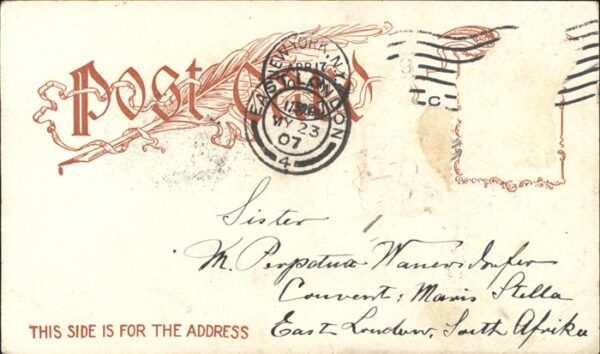 Post Card
NEW YORK, N.Y.
APR 17
EAST LONDON
MY 23
07
4
C
Sister
M. Perpetua Wanersdorfer
Convent: Maris Stella
East London, South Afrika
THIS SIDE IS FOR THE ADDRESS